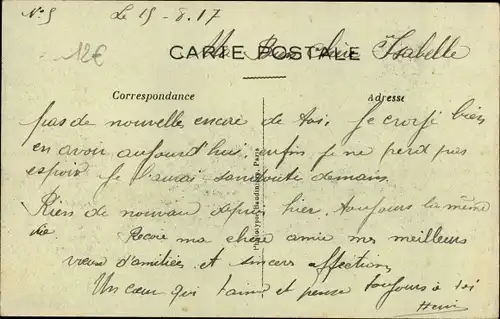 N° 5 Le 15-8.17
12€
Ma Bien chère Isabelle
CARTE POSTALE
Correspondance Adresse
pas de nouvelle encore de toi. Je croyé bien
en avoir aujourd'hui, enfin je ne perd pas
espoir Je l'aurai sans doute demain.
Rien de nouveau depuis hier, toujours la même
vie Recoie ma chère amie mes meilleurs
vœux d'amitiées et sincères affections
Un cœur qui t'aime et pense toujours à toi
Henri
Phototypie Baudinière, Paris